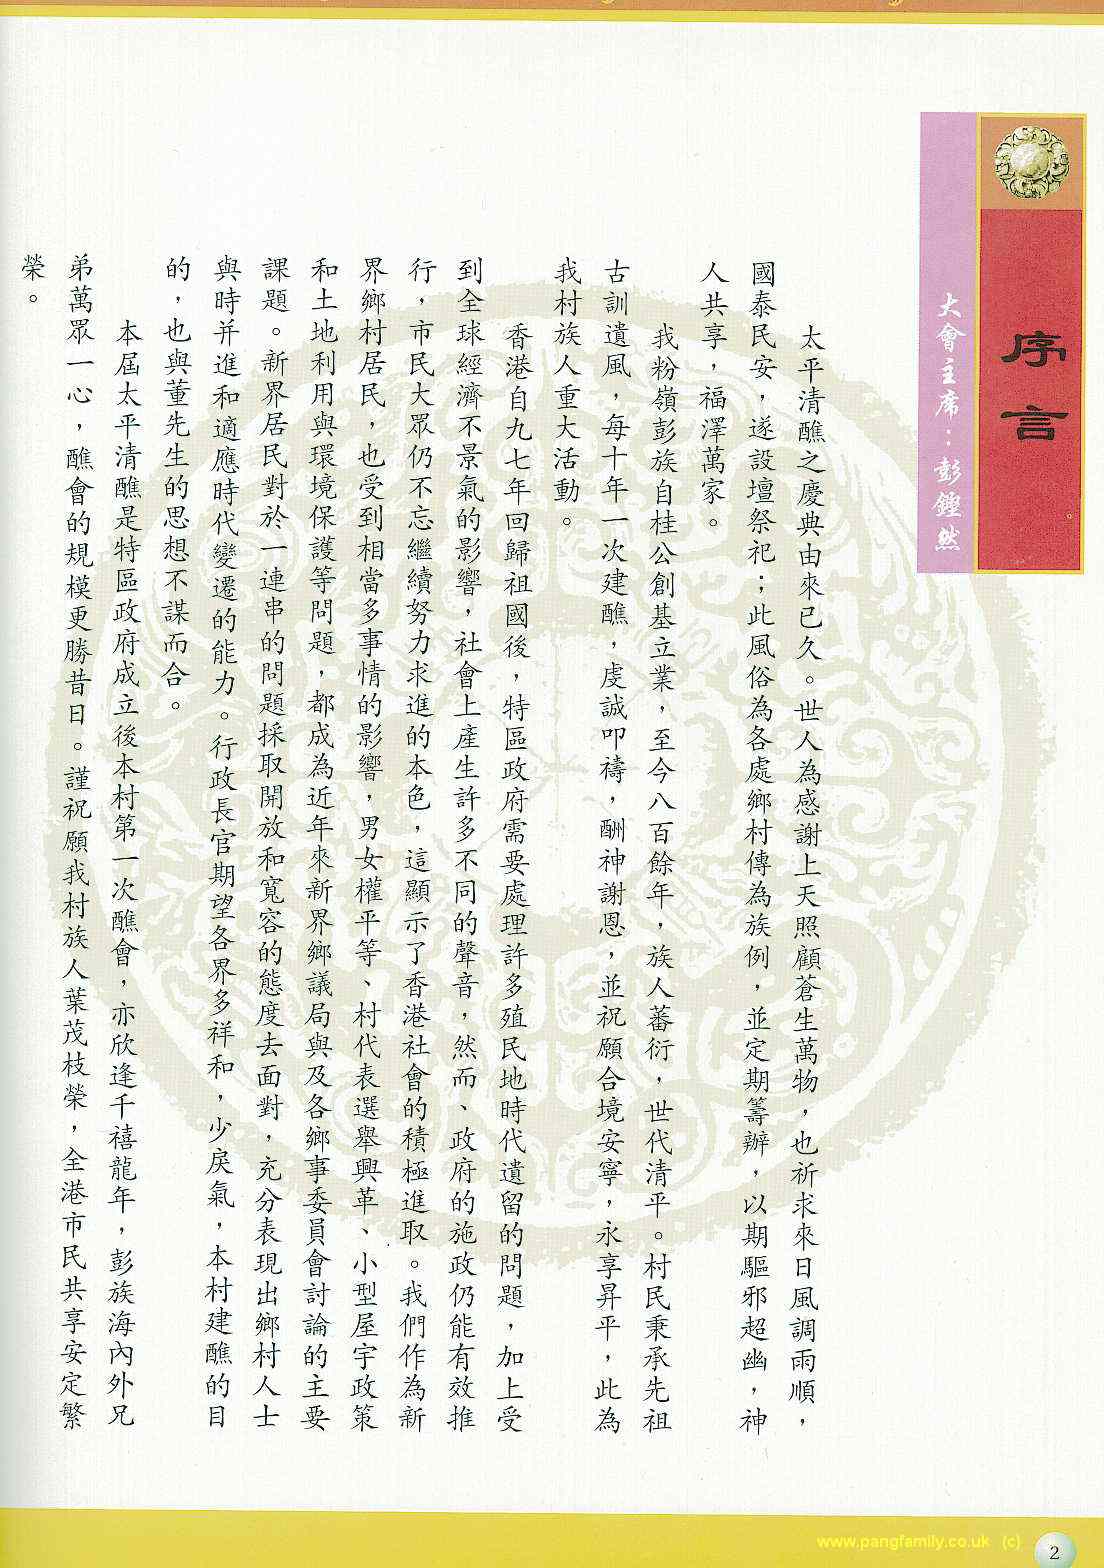 序言
大會主席：彭鏗然
太平清醮之慶典由來已久。世人為感謝上天照顧蒼生萬物，也祈求來日風調雨順，
國泰民安，遂設壇祭祀；此風俗為各處鄉村傳為族例，並定期籌辦，以期驅邪超幽，神
人共享，福澤萬家。
我粉嶺彭族自桂公創基立業，至今八百餘年，族人蕃衍，世代清平。村民秉承先祖
古訓遺風，每十年一次建醮，虔誠叩禱，酬神謝恩，並祝願合境安寧，永享昇平，此為
我村族人重大活動。
香港自九七年回歸祖國後，特區政府需要處理許多殖民地時代遺留的問題，加上受
到全球經濟不景氣的影響，社會上產生許多不同的聲音，然而、政府的施政仍能有效推
行，市民大眾仍不忘繼續努力求進的本色，這顯示了香港社會的積極進取。我們作為新
界鄉村居民，也受到相當多事情的影響，男女權平等、村代表選舉興革、小型屋宇政策
和土地利用與環境保護等問題，都成為近年來新界鄉議局與及各鄉事委員會討論的主要
課題。新界居民對於一連串的問題採取開放和寬容的態度去面對，充分表現出鄉村人士
與時并進和適應時代變遷的能力。行政長官期望各界多祥和，少戾氣，本村建醮的目
的，也與董先生的思想不謀而合。
本屆太平清醮是特區政府成立後本村第一次醮會，亦欣逢千禧龍年，彭族海內外兄
弟萬眾一心，醮會的規模更勝昔日。謹祝願我村族人葉茂枝榮，全港市民共享安定繁
榮。
www.pangfamily.co.uk (c)
2